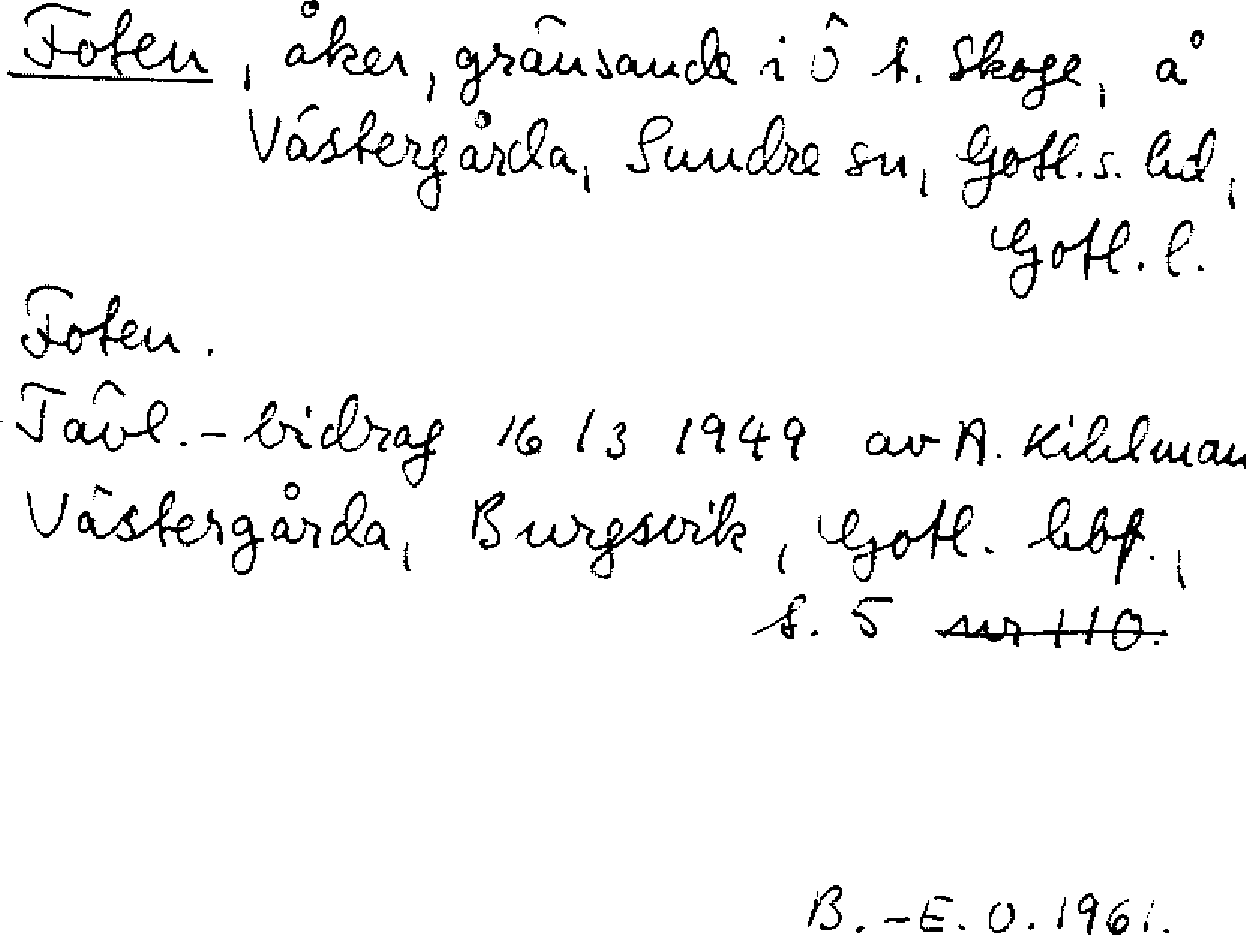 Foten, åker, gränsande i Ö t. Skoge, å
Västergårda, Sundre sn, Gotl. s. hd,
Gotl. l.
Foten.
Tävl.-bidrag 16/3 1949 av A. Kihlman
Västergårda, Burgsvik, Gotl. hbf.,
s. 5 nr 110.
B.-E. O. 1961.